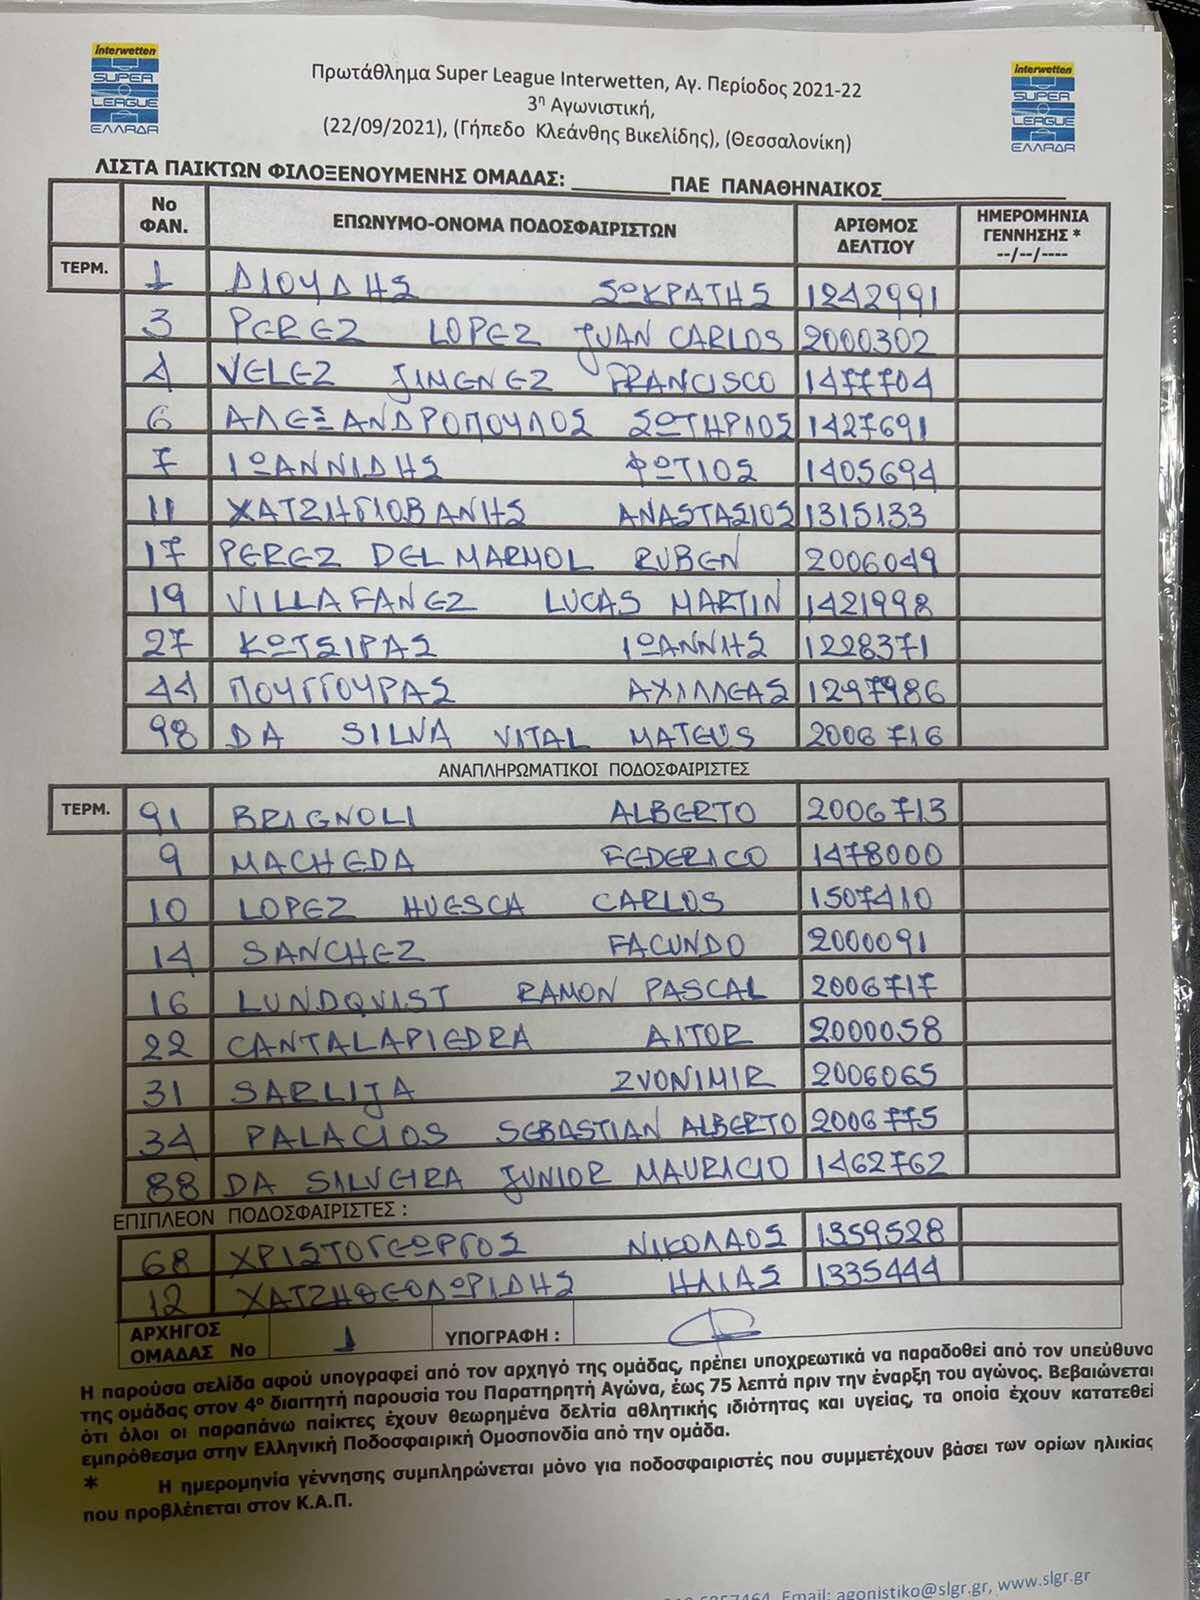 interwetten
SUPER
LEAGUE
ΕΛΛΑΔΑ
interwetten
SUPER
LEAGUE
ΕΛΛΑΔΑ
Πρωτάθλημα Super League Interwetten, Αγ. Περίοδος 2021-22
3η Αγωνιστική,
(22/09/2021), (Γήπεδο Κλεάνθης Βικελίδης), (Θεσσαλονίκη)
ΛΙΣΤΑ ΠΑΙΚΤΩΝ ΦΙΛΟΞΕΝΟΥΜΕΝΗΣ ΟΜΑΔΑΣ: ________ΠΑΕ ΠΑΝΑΘΗΝΑΙΚΟΣ_______________
Νο ΦΑΝ. ΕΠΩΝΥΜΟ-ΟΝΟΜΑ ΠΟΔΟΣΦΑΙΡΙΣΤΩΝ ΑΡΙΘΜΟΣ ΔΕΛΤΙΟΥ ΗΜΕΡΟΜΗΝΙΑ ΓΕΝΝΗΣΗΣ * --/--/----
ΤΕΡΜ. 1 ΔΙΟΥΔΗΣ ΣΩΚΡΑΤΗΣ 1242991
3 PEREZ LOPEZ JUAN CARLOS 2000302
4 VELEZ JIMENEZ FRANCISCO 1477704
6 ΑΛΕΞΑΝΔΡΟΠΟΥΛΟΣ ΣΩΤΗΡΙΟΣ 1427691
7 ΙΩΑΝΝΙΔΗΣ ΦΩΤΙΟΣ 1405694
11 ΧΑΤΖΗΓΙΟΒΑΝΗΣ ΑΝΑΣΤΑΣΙΟΣ 1315133
17 PEREZ DEL MARMOL RUBEN 2006049
19 VILLAFANEZ LUCAS MARTIN 1421998
27 ΚΩΤΣΙΡΑΣ ΙΩΑΝΝΗΣ 1228371
44 ΠΟΥΓΓΟΥΡΑΣ ΑΧΙΛΛΕΑΣ 1297986
98 DA SILVA VITAL MATEUS 2006716
ΑΝΑΠΛΗΡΩΜΑΤΙΚΟΙ ΠΟΔΟΣΦΑΙΡΙΣΤΕΣ
ΤΕΡΜ. 91 BRIGNOLI ALBERTO 2006713
9 MACHEDA FEDERICO 1478000
10 LOPEZ HUESCA CARLOS 1507410
14 SANCHEZ FACUNDO 2000091
16 LUNDQVIST RAMON PASCAL 2006717
22 CANTALAPIEDRA AITOR 2000058
31 SARLIJA ZVONIMIR 2006065
34 PALACIOS SEBASTIAN ALBERTO 2006775
88 DA SILVEIRA JUNIOR MAURICIO 1462762
ΕΠΙΠΛΕΟΝ ΠΟΔΟΣΦΑΙΡΙΣΤΕΣ :
68 ΧΡΙΣΤΟΓΕΩΡΓΟΣ ΝΙΚΟΛΑΟΣ 1359528
12 ΧΑΤΖΗΘΕΟΔΩΡΙΔΗΣ ΗΛΙΑΣ 1335444
ΑΡΧΗΓΟΣ ΟΜΑΔΑΣ Νο 1 ΥΠΟΓΡΑΦΗ :
Η παρούσα σελίδα αφού υπογραφεί από τον αρχηγό της ομάδας, πρέπει υποχρεωτικά να παραδοθεί από τον υπεύθυνο
της ομάδας στον 4ο διαιτητή παρουσία του Παρατηρητή Αγώνα, έως 75 λεπτά πριν την έναρξη του αγώνος. Βεβαιώνεται
ότι όλοι οι παραπάνω παίκτες έχουν θεωρημένα δελτία αθλητικής ιδιότητας και υγείας, τα οποία έχουν κατατεθεί
εμπρόθεσμα στην Ελληνική Ποδοσφαιρική Ομοσπονδία από την ομάδα.
* Η ημερομηνία γέννησης συμπληρώνεται μόνο για ποδοσφαιριστές που συμμετέχουν βάσει των ορίων ηλικίας
που προβλέπεται στον Κ.Α.Π.
Email: agonistiko@slgr.gr, www.slgr.gr